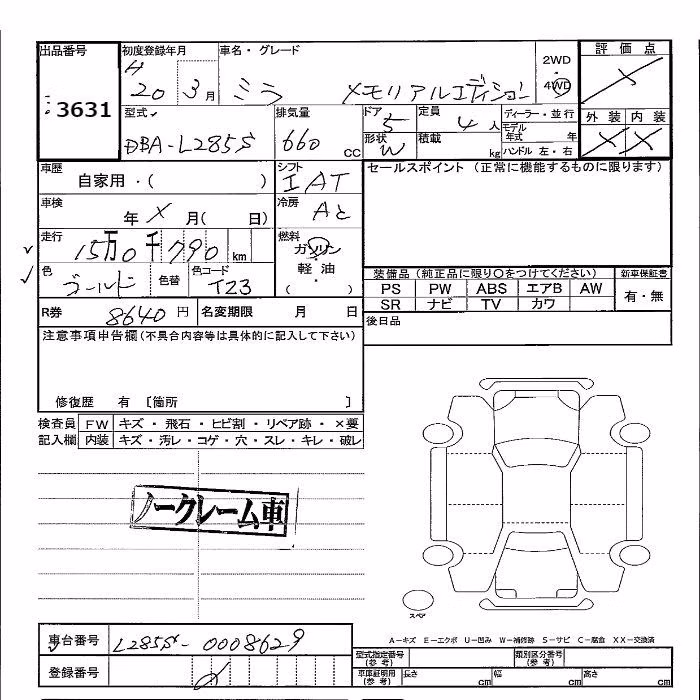 出品番号 初度登録年月 車名・グレード 2WD ・ 4WD 評価点
3631 H 20 3月 ミラ メモリアルエディション ×
型式 DBA-L285S 排気量 660 cc ドア 5 定員 4人 ディーラー・並行 外装 内装
形状 W 積載 kg モデル年式 年 × ×
ハンドル 左・右
車歴 自家用・( ) シフト IAT セールスポイント (正常に機能するものに限ります)
車検 年 × 月( 日) 冷房 Ac
走行 15万0千790 km 燃料 ガソリン
色 ゴールド 色替 色コード T23 軽油 ( )
装備品 (純正品に限り〇をつけてください) 新車保証書
PS PW ABS エアB AW 有・無
SR ナビ TV カワ
R券 8640 円 名変期限 月 日
後日品
注意事項申告欄 (不具合内容等は具体的に記入して下さい)
修復歴 有 〔箇所 〕
検査員 FW キズ・飛石・ヒビ割・リペア跡・×要
記入欄 内装 キズ・汚レ・コゲ・穴・スレ・キレ・破レ
ノークレーム車
スペア
A-キズ E-エクボ U-凹み W-補修跡 S-サビ C-腐食 XX-交換済
車台番号 L285S-0008629
型式指定番号 (参考) 類別区分番号 (参考)
登録番号
車庫証明用 (参考) 長さ cm 幅 cm 高さ cm